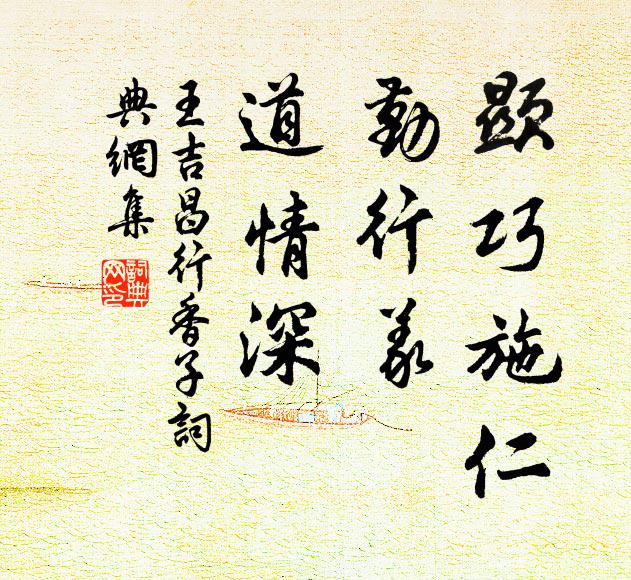 顯巧施仁
勤行義
道情深
王吉昌行香子詞
典網集
詞典網印